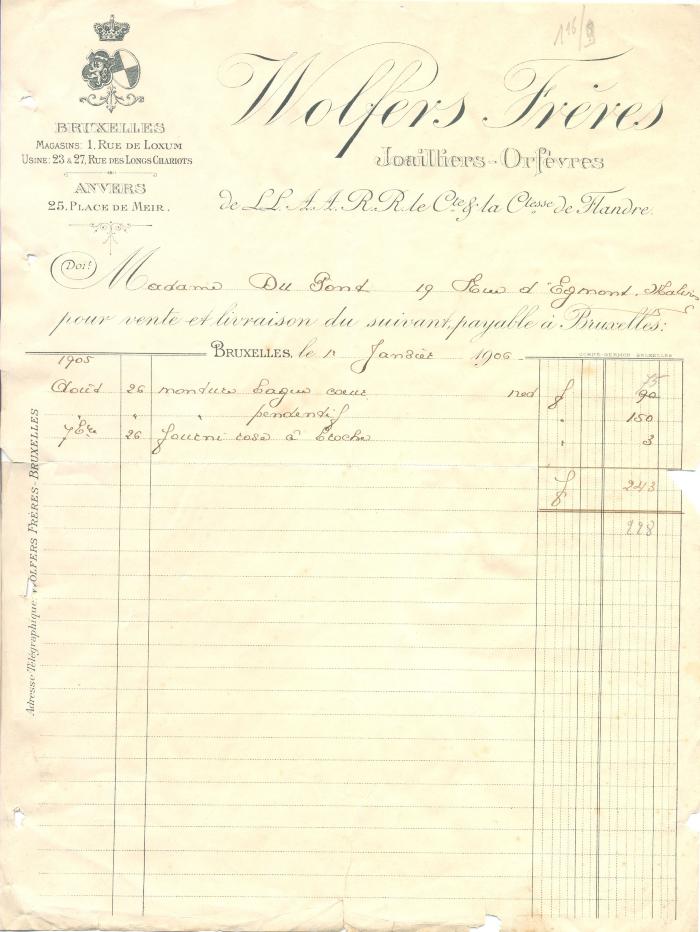 116/
Wolfers Frères
Joailliers-Orfèvres
de LL. A.A. R.R. le Cte & la Ctesse de Flandre.
BRUXELLES
MAGASINS: 1, RUE DE LOXUM
USINE: 23 & 27, RUE DES LONGS CHARIOTS
ANVERS
25, PLACE DE MEIR.
Doit
Madame Du Pont 19 Rue d'Egmont.
pour vente et livraison du suivant, payable à Bruxelles:
BRUXELLES, le 1r Janvier 1906
1905
Août 26 monture bague cœur f 90
75
" " " pendentif " 150
7bre 26 fourni rose à broche " 3
f 243
228
Adresse Télégraphique WOLFERS FRÈRES-BRUXELLES